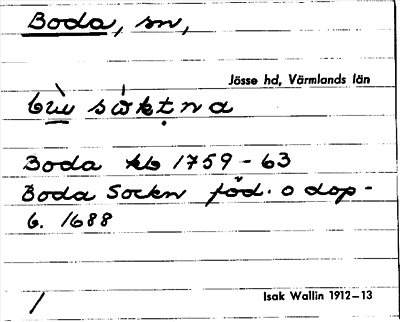 Boda, sn,
Jösse hd, Värmlands län
Boda kb 1759-63
Boda Sockn föd. o dop-
b. 1688
/
Isak Wallin 1912–13